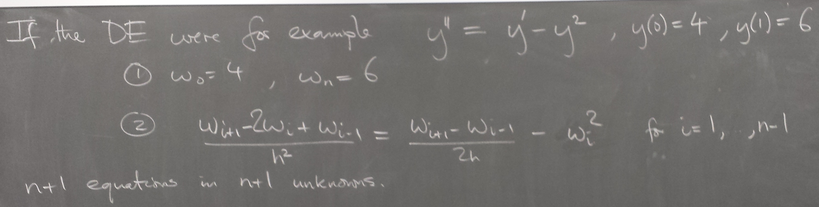 If the DE were for example y'' = y' - y², y(0) = 4, y(1) = 6
① w₀ = 4, wₙ = 6
② (wᵢ₊₁ - 2wᵢ + wᵢ₋₁)/h² = (wᵢ₊₁ - wᵢ₋₁)/2h - wᵢ² for i = 1, ., n-1
n+1 equations in n+1 unknowns.